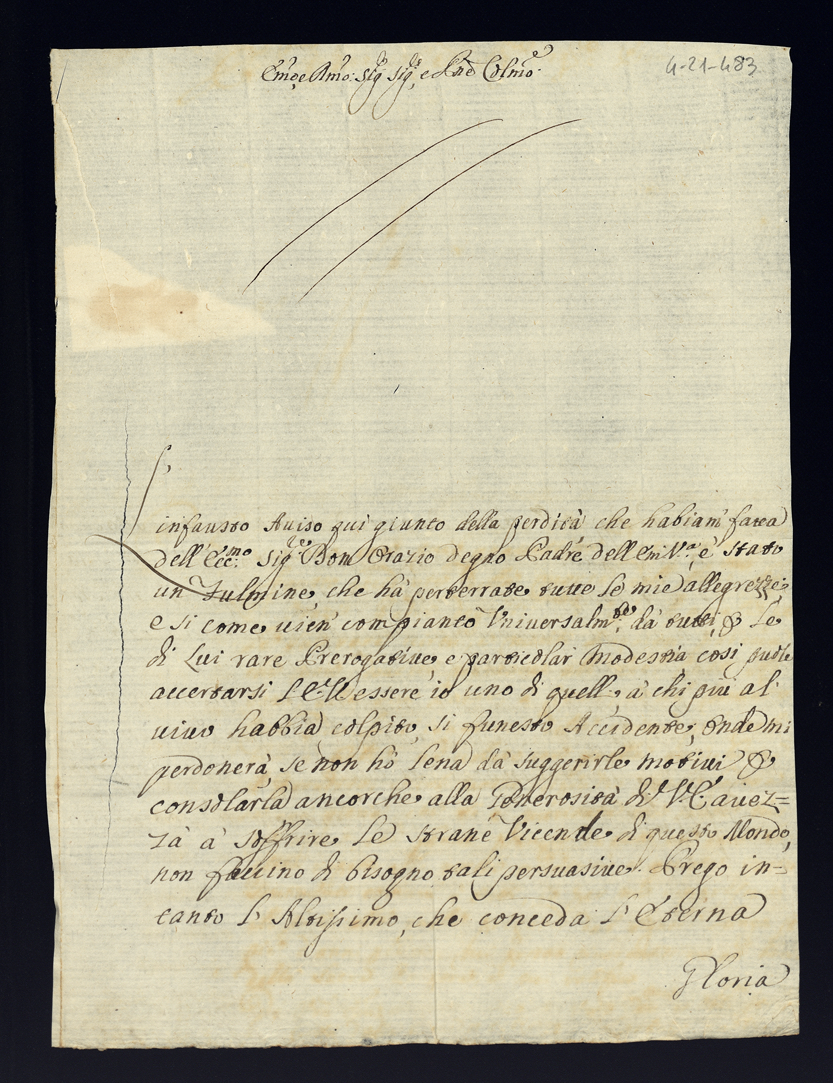 Em̃o, e Rm̃o: Sig.r Sig.re, e Pñe Colmo.
4-21-483
L'
infausto Auiso qui giunto della perdita che habiam' fatta
dell'Ecc.mo Sig.re Dom Orazio degno Padre dell'Em: V.a, è stato
un Fulmine, che hà perterrate tutte le mie allegrezze;
e si come uien' compianto Vniversalm.te dà tutti, p le
di Lui rare Prerogatiue e particolar Modestia cosi puole
accertarsi l'E. V. essere io uno di quelli à chi più al'
uiuo habbia colpito si funesto Accidente, onde mi
perdonerà, se non hò lena dà suggerirle motiui p
consolarla ancorche alla Generosità di V. E. auez=
zà à soffrire le strane Vicende di questo Mondo,
non faccino di bisogno tali persuasiue. Prego in=
tanto l'Altissimo, che conceda l'Eterna
Gloria